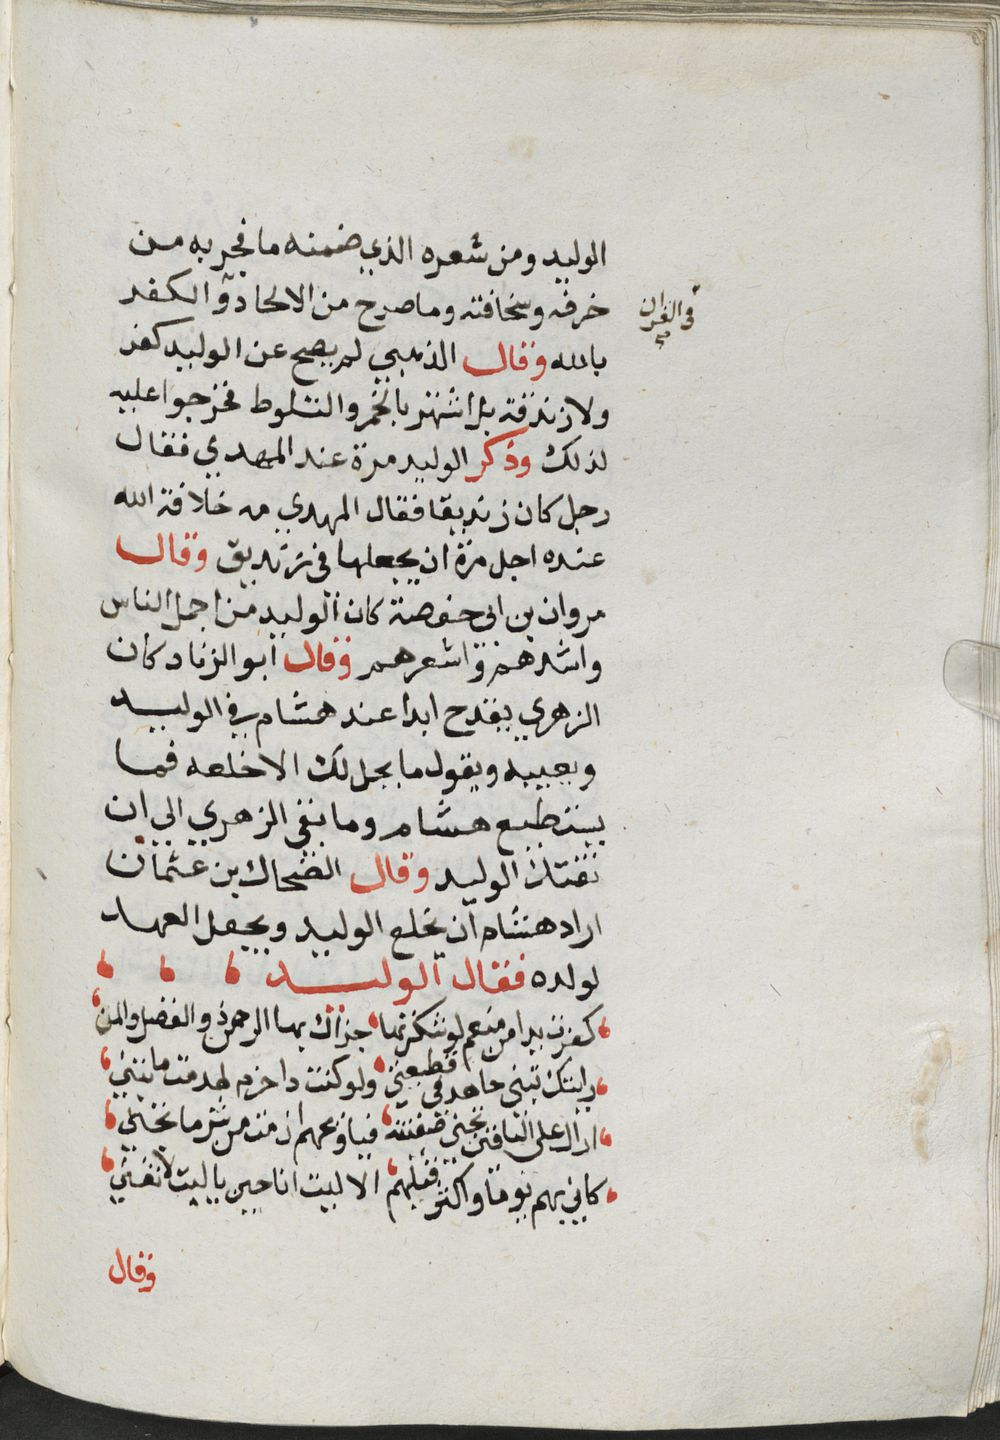 الوليد ومن شعره الذي ضمنه ما فجر به من
خرقه وسخافته وما صرح من الالحاد والكفر
في القران
بالله وقال الذهبي لم يصح عن الوليد كفر
ولا زندقة بل اشتهر بالخمر والتلوط فخرجوا عليه
لذلك وذكر الوليد مرة عند المهدي فقال
رجل كان زنديقا فقال المهدي مه خلافة الله
عنده اجل مرة ان يجعلها في زنديق وقال
مروان بن ابي حفصة كان الوليد من اجمل الناس
واشدهم واشعرهم وقال ابو الزناد كان
الزهري يقدح ابدا عند هشام في الوليد
ويعيبه ويقول ما يحل لك الا خلعه فما
يستطيع هشام وما بقي الزهري الى ان
تقتلك الوليد وقال الضحاك بن عثمان
اراد هشام ان يخلع الوليد ويجعل العهد
لولده فقال الوليد
كفرت يدا من منعم لو شكرتها جزاك بها الرحمن ذو الفضل والمن
رايتك تبني جاهدا في قطيعتي ولو كنت ذا حزم لهدمت ما تبني
اراك على الباقين تجني ضغينة فيا ويحهم ان مت من شر ما تجني
كاني بهم يوما واكثر قيلهم الا ليت انا حين يا ليت لا تغني
وقال